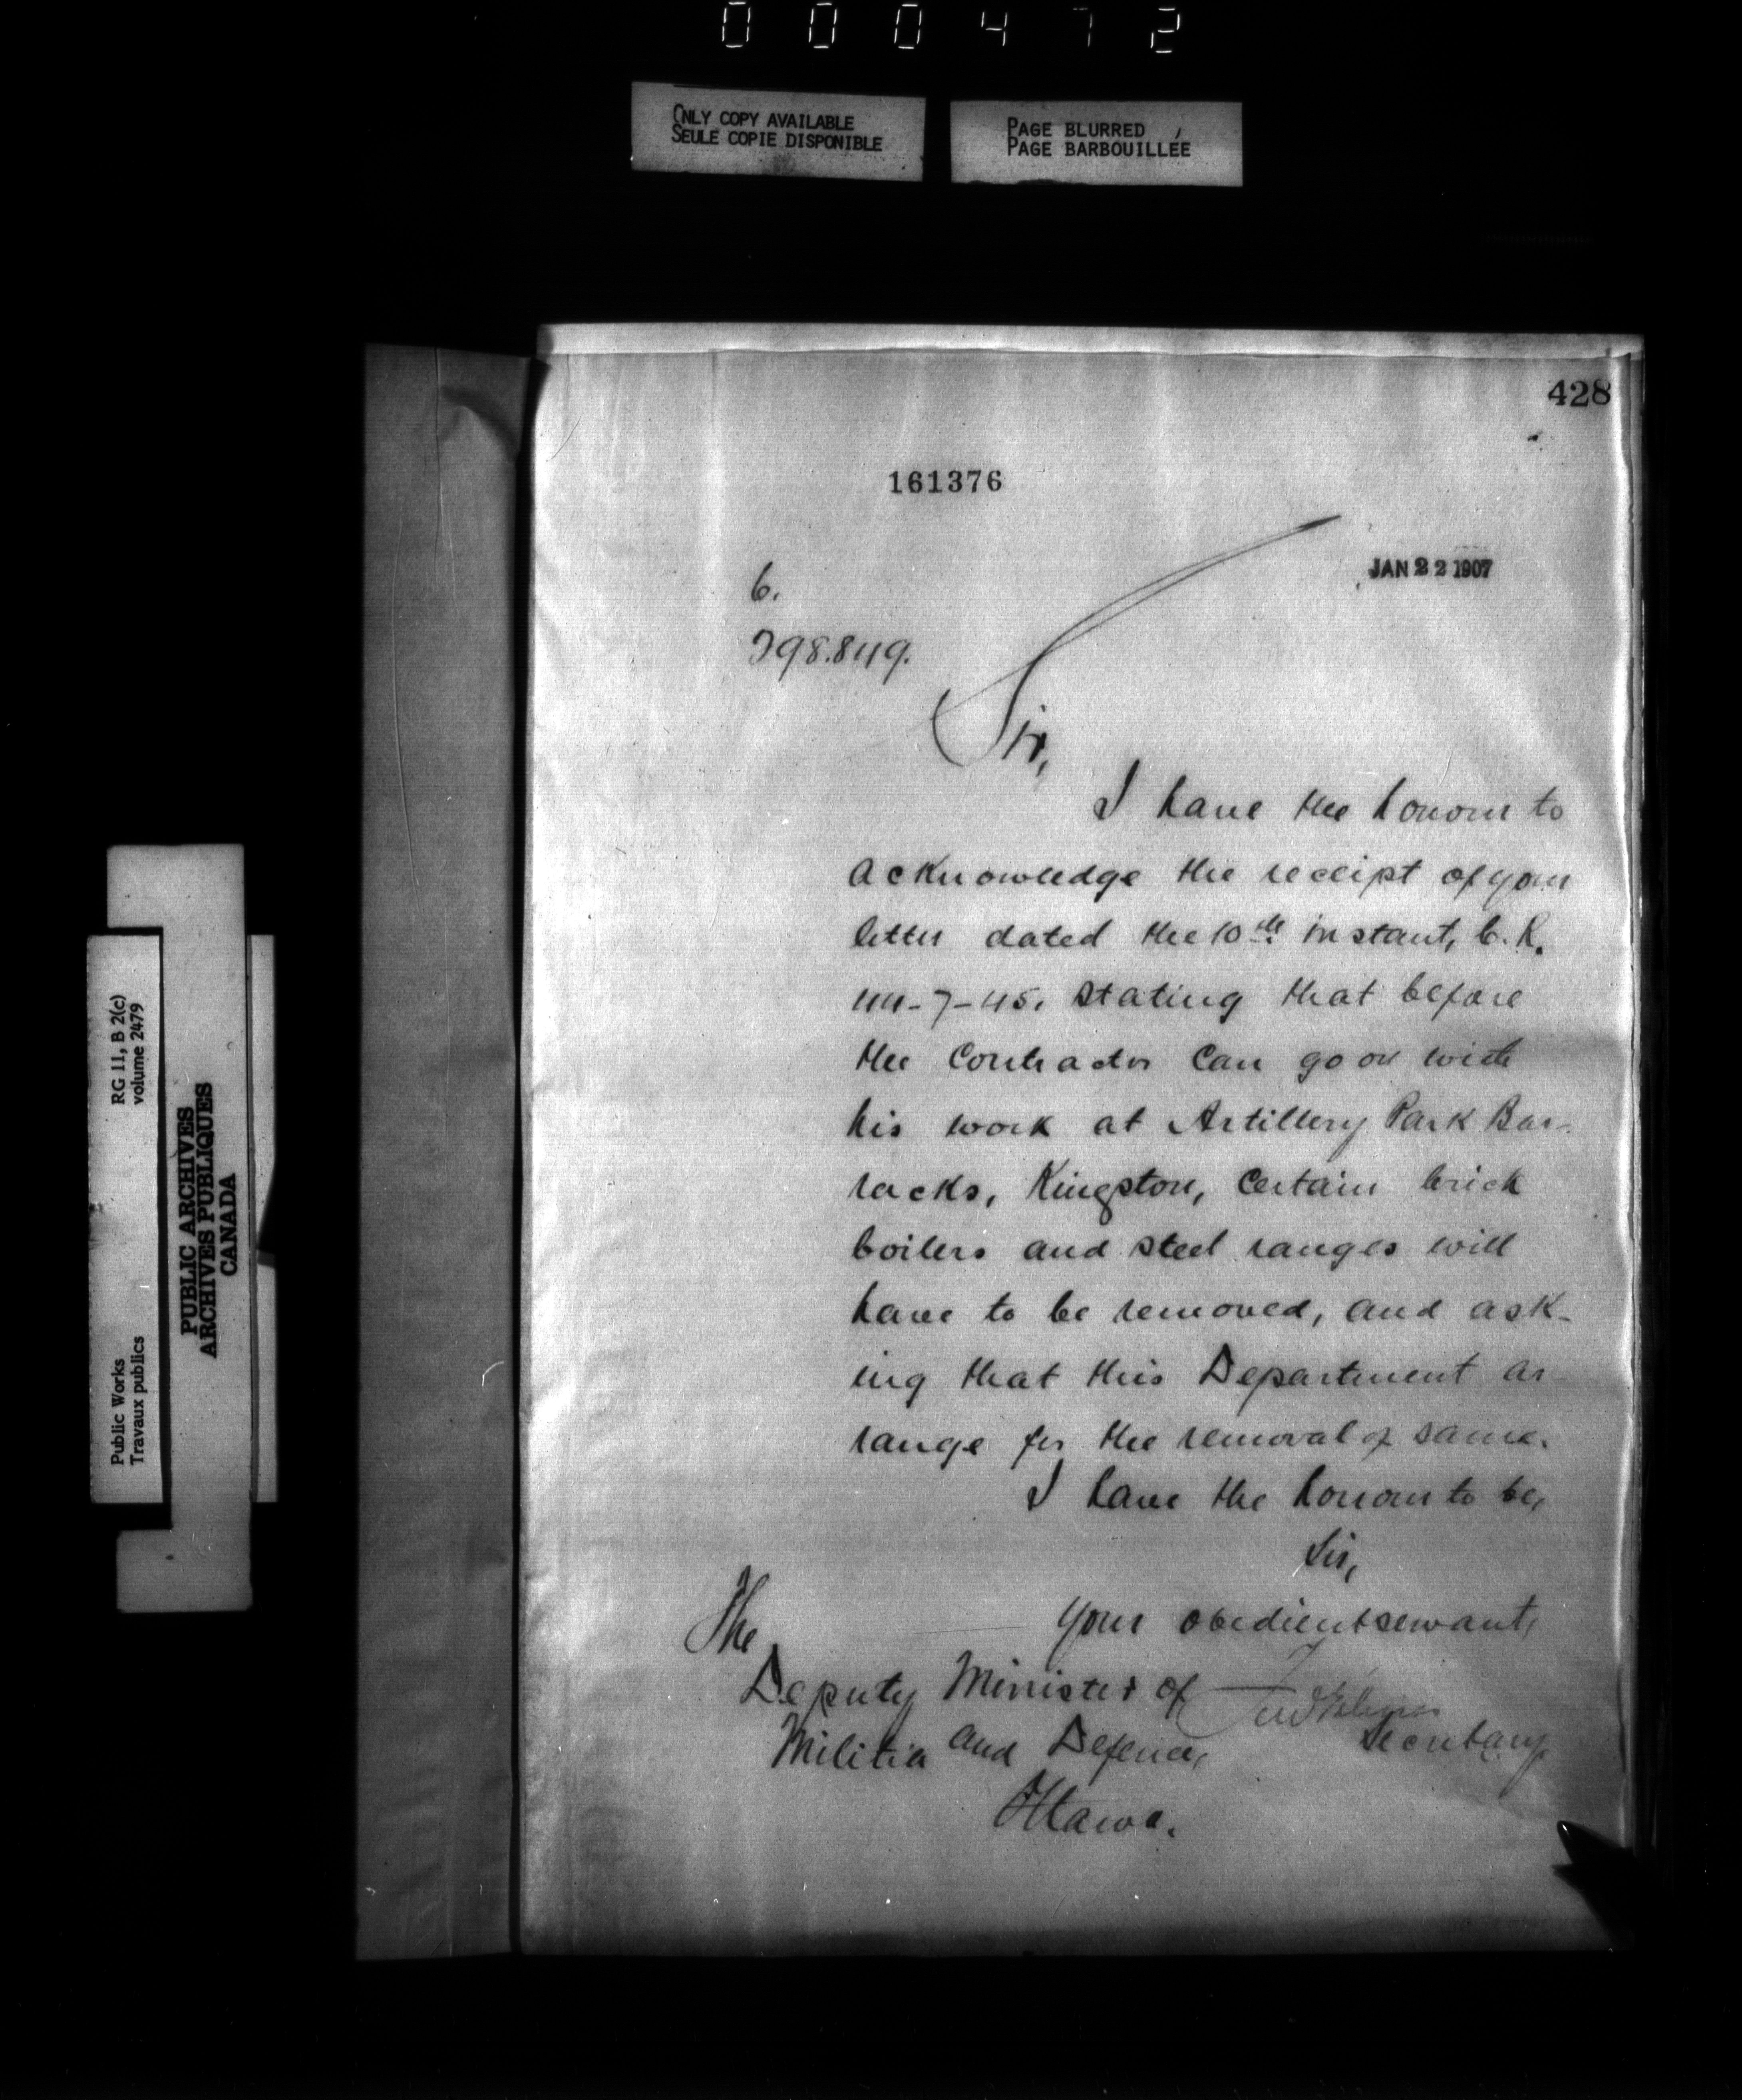 000472
ONLY COPY AVAILABLE
SEULE COPIE DISPONIBLE
PAGE BLURRED
PAGE BARBOUILLÉE
428
161376
JAN 22 1907
6.
298.849.
Sir,
I have the honour to
acknowledge the receipt of your
letter dated the 10th instant, C.K.
44-7-45. stating that before
the Contractor can go on with
his work at Artillery Park Bar-
racks, Kingston, certain brick
boilers and steel ranges will
have to be removed, and ask-
ing that this Department ar
range for the removal of same.
I have the honour to be,
Sir,
Your obedient servant,
The
Deputy Minister of
Militia and Defence,
Secretary
Ottawa.
Public Works
Travaux publics
RG 11, B 2(c)
volume 2479
PUBLIC ARCHIVES
ARCHIVES PUBLIQUES
CANADA